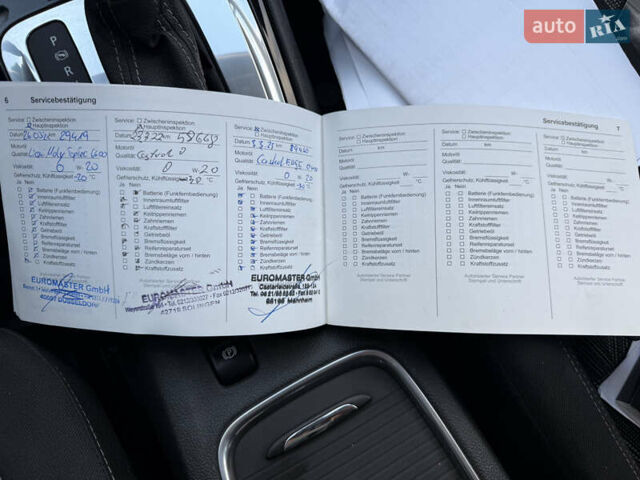 auto RIA
P
R
6 Servicebestätigung
Service: Zwischeninspektion
Hauptinspektion
Datum km 29419
Motoröl
Qualität: Liqui Moly 6600
Viskosität: 0 W- 20
Gefrierschutz, Kühlflüssigkeit °C
Ja Nein
Batterie (Funkfernbedienung)
Innenraumluftfilter
Luftfiltereinsatz
Keilrippenriemen
Zahnriemen
Kraftstofffilter
Getriebeöl
Bremsflüssigkeit
Reifenreparaturset
Bremsbeläge vorn / hinten
Zündkerzen
Kraftstoffzusatz
EUROMASTER GmbH
DÜSSELDORF
Service: Zwischeninspektion
Hauptinspektion
Datum km
Motoröl
Qualität: Castrol
Viskosität: 0 W- 20
Gefrierschutz, Kühlflüssigkeit °C
Ja Nein
Batterie (Funkfernbedienung)
Innenraumluftfilter
Luftfiltereinsatz
Keilrippenriemen
Zahnriemen
Kraftstofffilter
Getriebeöl
Bremsflüssigkeit
Reifenreparaturset
Bremsbeläge vorn / hinten
Zündkerzen
Kraftstoffzusatz
EUROMASTER GmbH
42719 SOLINGEN
Service: Zwischeninspektion
Hauptinspektion
Datum km
Motoröl
Qualität: Castrol
Viskosität: 0 W- 20
Gefrierschutz, Kühlflüssigkeit °C
Ja Nein
Batterie (Funkfernbedienung)
Innenraumluftfilter
Luftfiltereinsatz
Keilrippenriemen
Zahnriemen
Kraftstofffilter
Getriebeöl
Bremsflüssigkeit
Reifenreparaturset
Bremsbeläge vorn / hinten
Zündkerzen
Kraftstoffzusatz
EUROMASTER GmbH
Mannheim
Servicebestätigung 7
Service: Zwischeninspektion
Hauptinspektion
Datum km
Motoröl
Qualität:
Viskosität: W-
Gefrierschutz, Kühlflüssigkeit °C
Ja Nein
Batterie (Funkfernbedienung)
Innenraumluftfilter
Luftfiltereinsatz
Keilrippenriemen
Zahnriemen
Kraftstofffilter
Getriebeöl
Bremsflüssigkeit
Reifenreparaturset
Bremsbeläge vorn / hinten
Zündkerzen
Kraftstoffzusatz
Autorisierter Service Partner
Stempel und Unterschrift
Service: Zwischeninspektion
Hauptinspektion
Datum km
Motoröl
Qualität:
Viskosität: W-
Gefrierschutz, Kühlflüssigkeit °C
Ja Nein
Batterie (Funkfernbedienung)
Innenraumluftfilter
Luftfiltereinsatz
Keilrippenriemen
Zahnriemen
Kraftstofffilter
Getriebeöl
Bremsflüssigkeit
Reifenreparaturset
Bremsbeläge vorn / hinten
Zündkerzen
Kraftstoffzusatz
Autorisierter Service Partner
Stempel und Unterschrift
Service: Zwischeninspektion
Hauptinspektion
Datum km
Motoröl
Qualität:
Viskosität: W-
Gefrierschutz, Kühlflüssigkeit °C
Ja Nein
Batterie (Funkfernbedienung)
Innenraumluftfilter
Luftfiltereinsatz
Keilrippenriemen
Zahnriemen
Kraftstofffilter
Getriebeöl
Bremsflüssigkeit
Reifenreparaturset
Bremsbeläge vorn / hinten
Zündkerzen
Kraftstoffzusatz
Autorisierter Service Partner
Stempel und Unterschrift